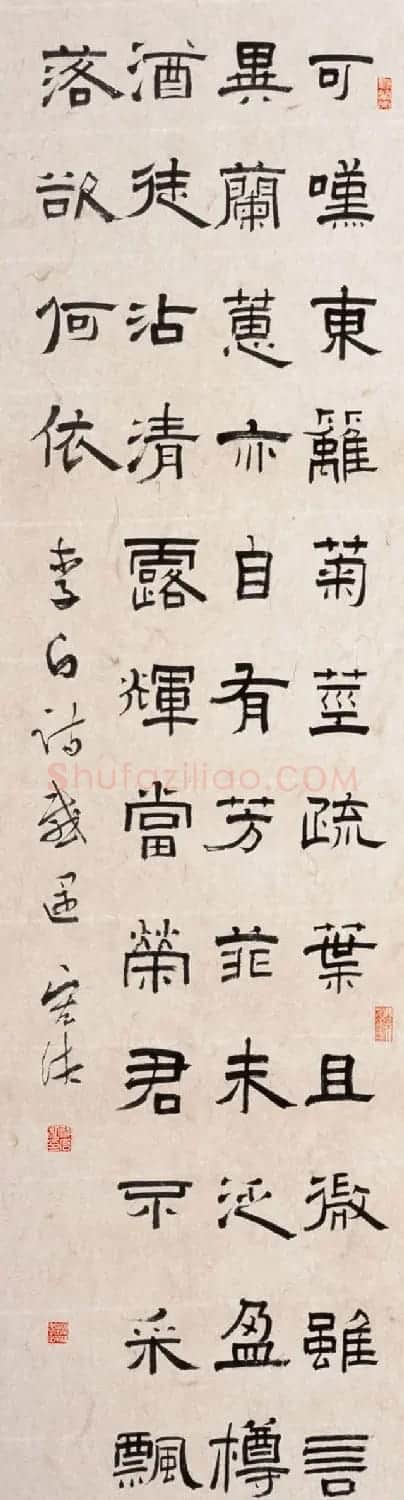 可嘆東籬菊莖疏葉且微雖言
異蘭蕙亦自有芳菲未泛盈樽
酒徒沾清露輝當榮君不采飄
落欲何依 李白詩感遇
Shufaziliao.COM